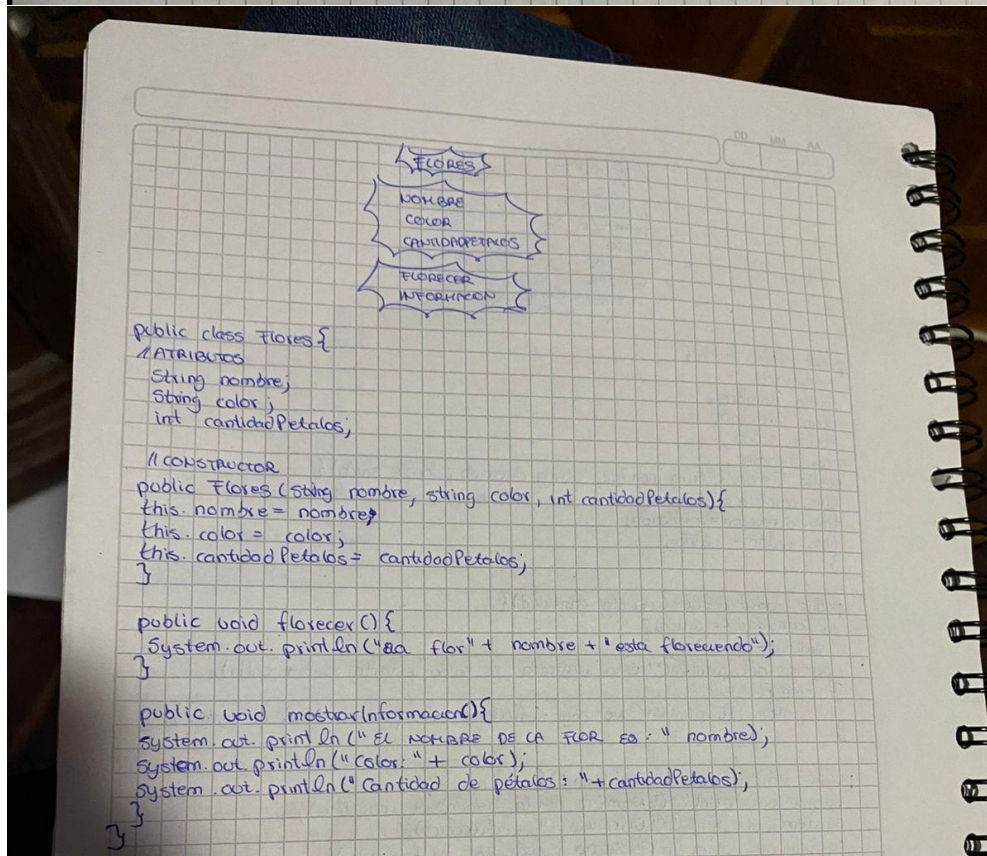 DD MM AA
FLORES
NOMBRE
COLOR
CANTIDADPETALOS
FLORECER
INFORMACION
public class Flores{
//ATRIBUTOS
String nombre;
String color;
int cantidadPetalos;
//CONSTRUCTOR
public Flores (String nombre, string color, int cantidadPetalos){
this.nombre = nombre;
this.color = color;
this.cantidadPetalos = cantidadPetalos;
}
public void florecer(){
System.out.println("La flor" + nombre + "esta floreciendo");
}
public void mostrarInformacion(){
system.out.println("EL NOMBRE DE LA FLOR ES: " nombre);
system.out.println("Color: " + color);
system.out.println("Cantidad de pétalos: "+cantidadPetalos);
}
}